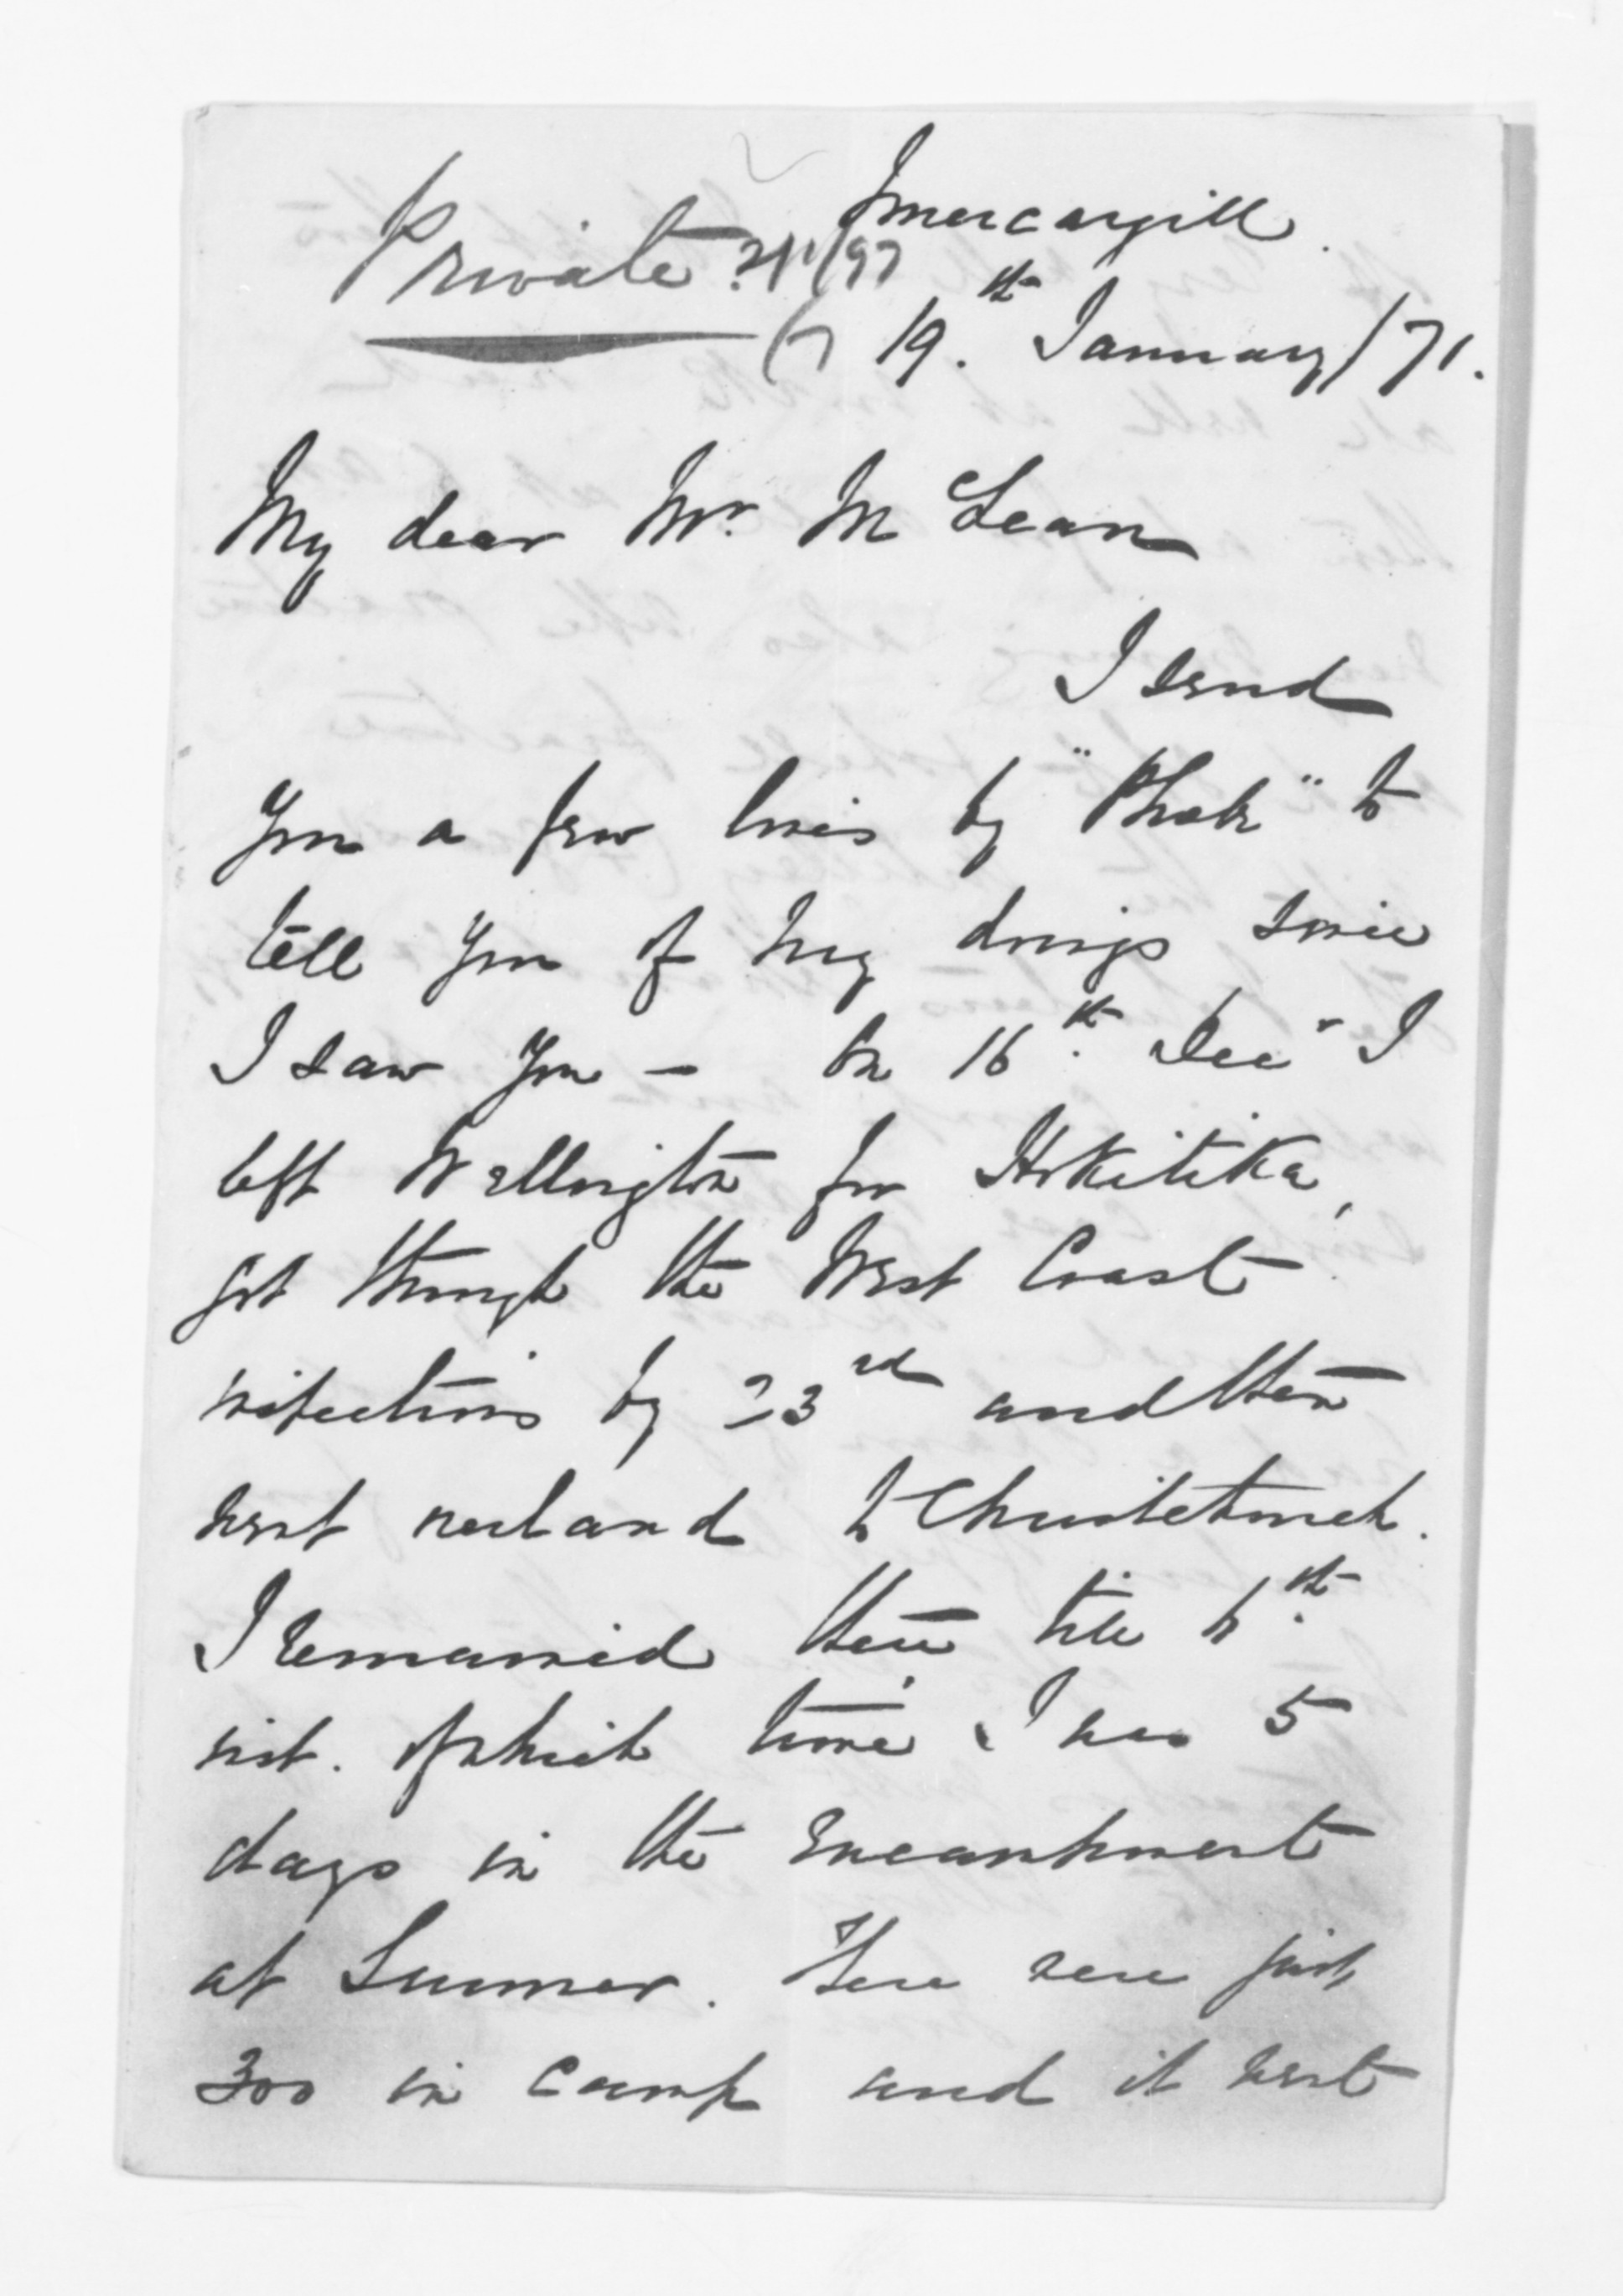 Invercargill.
Private
19.th January / 71.
My dear Mr. McLean
I send
you a few lines by "Phoebe" to
tell you of my doings since
I saw you — On 16th. Decr I
left Wellington for Hokitika,
got through the West Coast
inspections by 23rd and then
went overland to Christchurch.
I remained there till 6th.
inst. of which time I was 5
days in the Encampment
at Sumner. There were just
300 in camp and it went